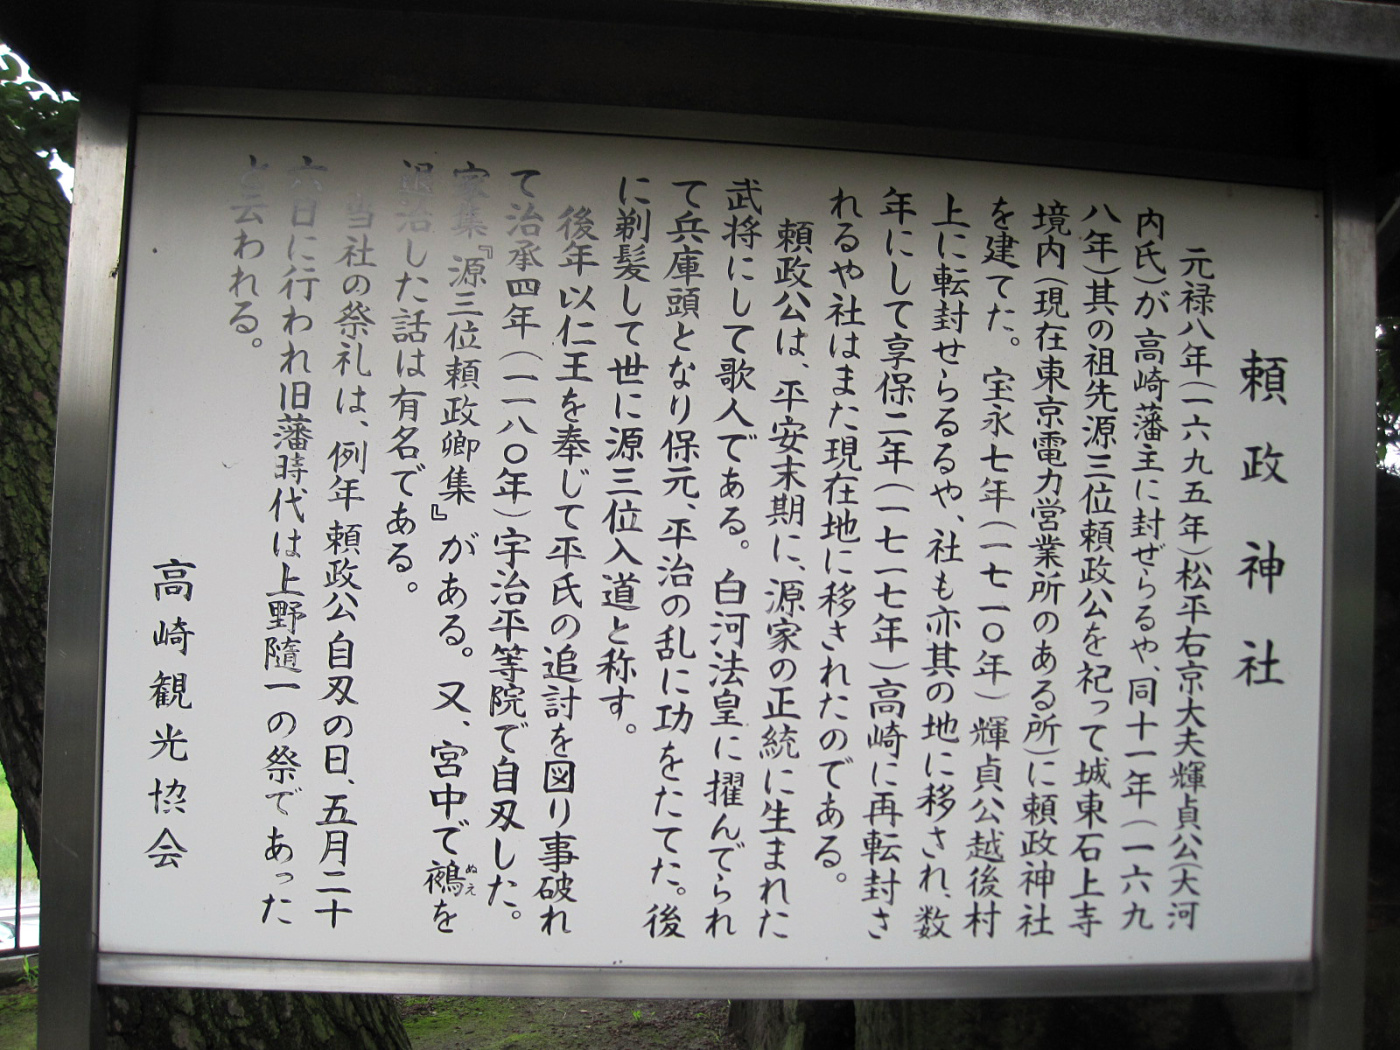 頼政神社
元禄八年(一六九五年)松平右京大夫輝貞公(大河
内氏)が高崎藩主に封ぜらるや、同十一年(一六九
八年)其の祖先源三位頼政公を祀って城東石上寺
境内(現在東京電力営業所のある所)に頼政神社
を建てた。宝永七年(一七一〇年)輝貞公越後村
上に転封せらるるや、社も亦其の地に移され、数
年にして享保二年(一七一七年)高崎に再転封さ
れるや社はまた現在地に移されたのである。
頼政公は、平安末期に、源家の正統に生まれた
武将にして歌人である。白河法皇に擢んでられ
て兵庫頭となり保元、平治の乱に功をたてた。後
に剃髪して世に源三位入道と称す。
後年以仁王を奉じて平氏の追討を図り事破れ
て治承四年(一一八〇年)宇治平等院で自刃した。
家集『源三位頼政卿集』がある。又、宮中で鵺(ぬえ)を
退治した話は有名である。
当社の祭礼は、例年頼政公自刃の日、五月二十
六日に行われ旧藩時代は上野隨一の祭であった
と云われる。
高崎観光協会